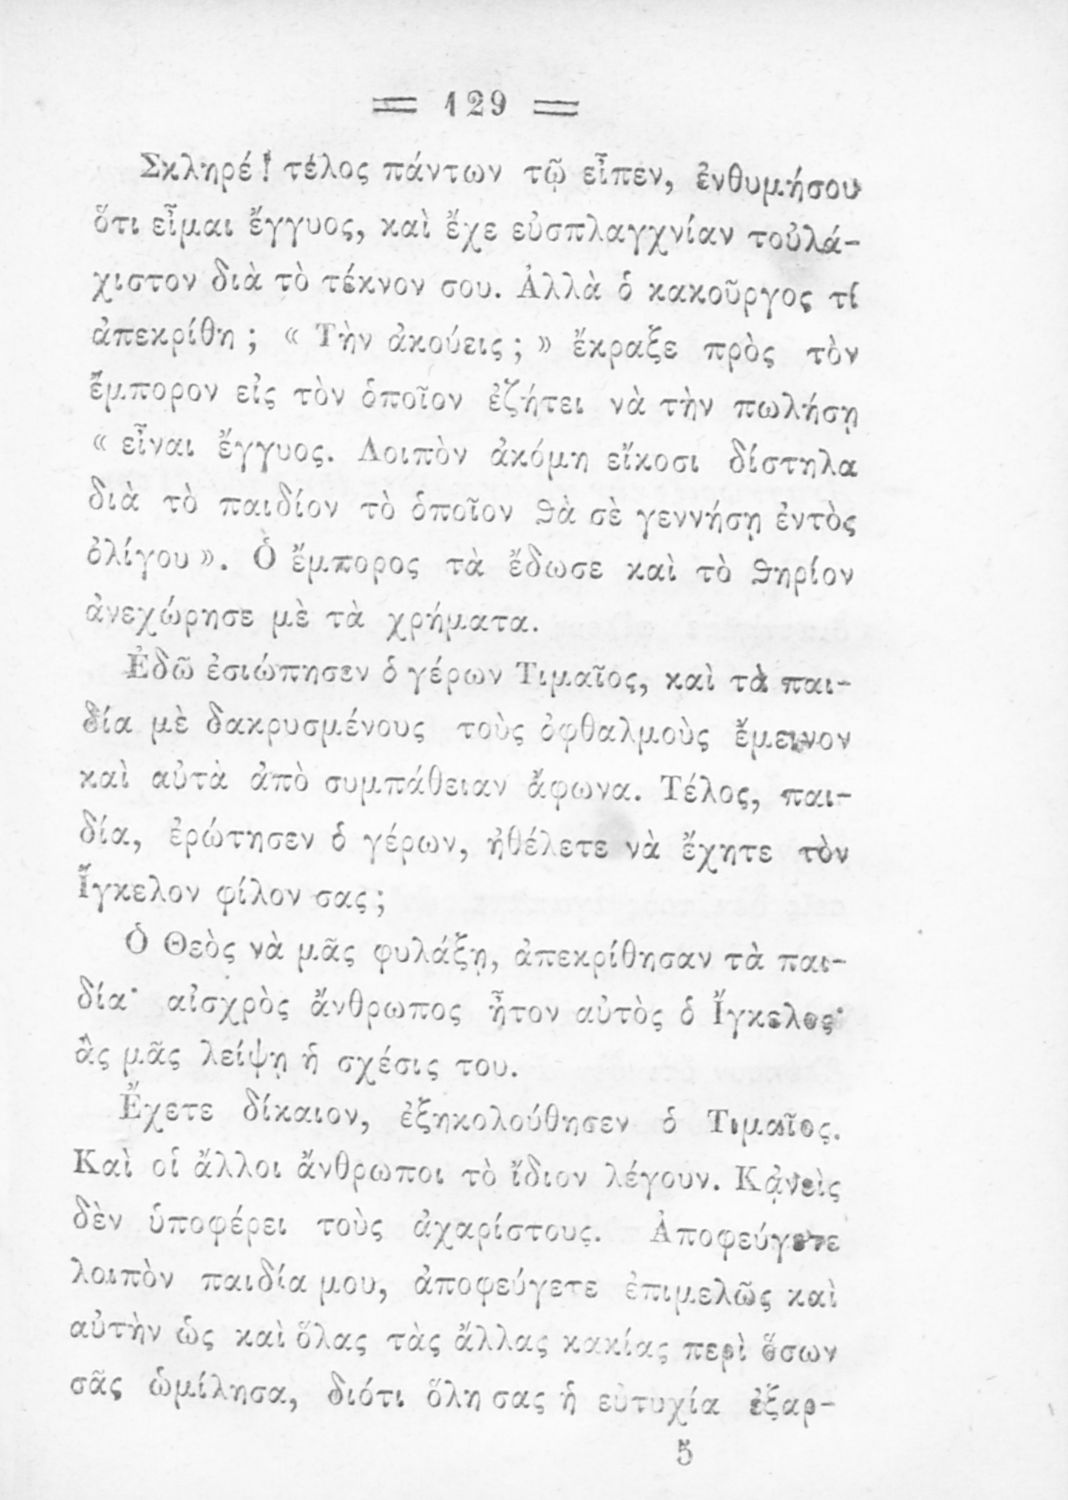 = 129 =
Σκληρέ! τέλος πάντων τῷ εἶπεν, ἐνθυμήσου
ὅτι εἶμαι ἔγγυος, καὶ ἔχε εὐσπλαγχνίαν τοὐλά-
χιστον διὰ τὸ τέκνον σου. Ἀλλὰ ὁ κακοῦργος τί
ἀπεκρίθη ; « Τὴν ἀκούεις ; » ἔκραξε πρὸς τὸν
ἔμπορον εἰς τὸν ὁποῖον ἐζήτει νὰ τὴν πωλήσῃ
« εἶναι ἔγγυος. Λοιπὸν ἀκόμη εἴκοσι δίστηλα
διὰ τὸ παιδίον τὸ ὁποῖον θὰ σὲ γεννήσῃ ἐντὸς
ὀλίγου ». Ὁ ἔμπορος τὰ ἔδωσε καὶ τὸ θηρίον
ἀνεχώρησε μὲ τὰ χρήματα.
Ἐδῶ ἐσιώπησεν ὁ γέρων Τιμαῖος, καὶ τὰ παι-
δία μὲ δακρυσμένους τοὺς ὀφθαλμοὺς ἔμεινον
καὶ αὐτὰ ἀπὸ συμπάθειαν ἄφωνα. Τέλος, παι-
δία, ἐρώτησεν ὁ γέρων, ἠθέλετε νὰ ἔχητε τὸν
Ἴγκελον φίλον σας;
Ὁ Θεὸς νὰ μᾶς φυλάξῃ, ἀπεκρίθησαν τὰ παι-
δία· αἰσχρὸς ἄνθρωπος ἦτον αὐτὸς ὁ Ἴγκελος·
ἂς μᾶς λείψῃ ἡ σχέσις του.
Ἔχετε δίκαιον, ἐξηκολούθησεν ὁ Τιμαῖος.
Καὶ οἱ ἄλλοι ἄνθρωποι τὸ ἴδιον λέγουν. Κᾀνεὶς
δὲν ὑποφέρει τοὺς ἀχαρίστους. Ἀποφεύγετε
λοιπὸν παιδία μου, ἀποφεύγετε ἐπιμελῶς καὶ
αὐτὴν ὡς καὶ ὅλας τὰς ἄλλας κακίας περὶ ὅσων
σᾶς ὡμίλησα, διότι ὅλη σας ἡ εὐτυχία ἐξαρ-
5